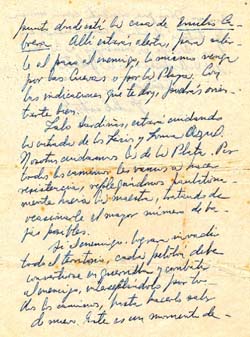 punto donde está la casa de Emilio Ca-
brera. Allí estarás alerta, para salir-
le al paso al enemigo, lo mismo venga
por las Cuevas o por la Plata. Con
las indicaciones que te doy podrás orien-
tarte bien.
Lalo Sardiñas, estará cuidando
la entrada de los Lirios y Loma Azul.
Nosotros cuidamos la de la Plata. Por
todos los caminos les vamos a hacer
resistencia, replegándonos paulatina-
mente hacia la Maestra, tratando de
ocasionarle el mayor número de ba-
jas posibles.
Si el enemigo lograra invadir
todo el territorio, cada pelotón debe
convertirse en guerrilla y combatir
al enemigo, interceptándolo por to-
dos los caminos, hasta hacerlo salir
de nuevo. Este es un momento de-